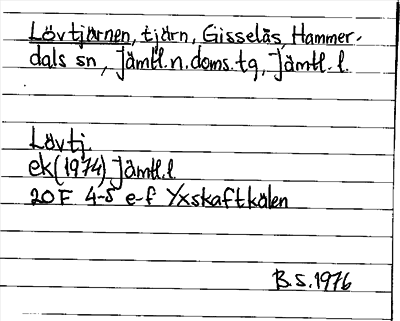 Lövtjärnen, tjärn, Gisselås, Hammer-
dals sn, Jämtl. n. doms. tg, Jämtl. l.
Lövtj.
ek (1974) Jämtl. l
20F 4-5 e-f Yxskaftkälen
B.S. 1976